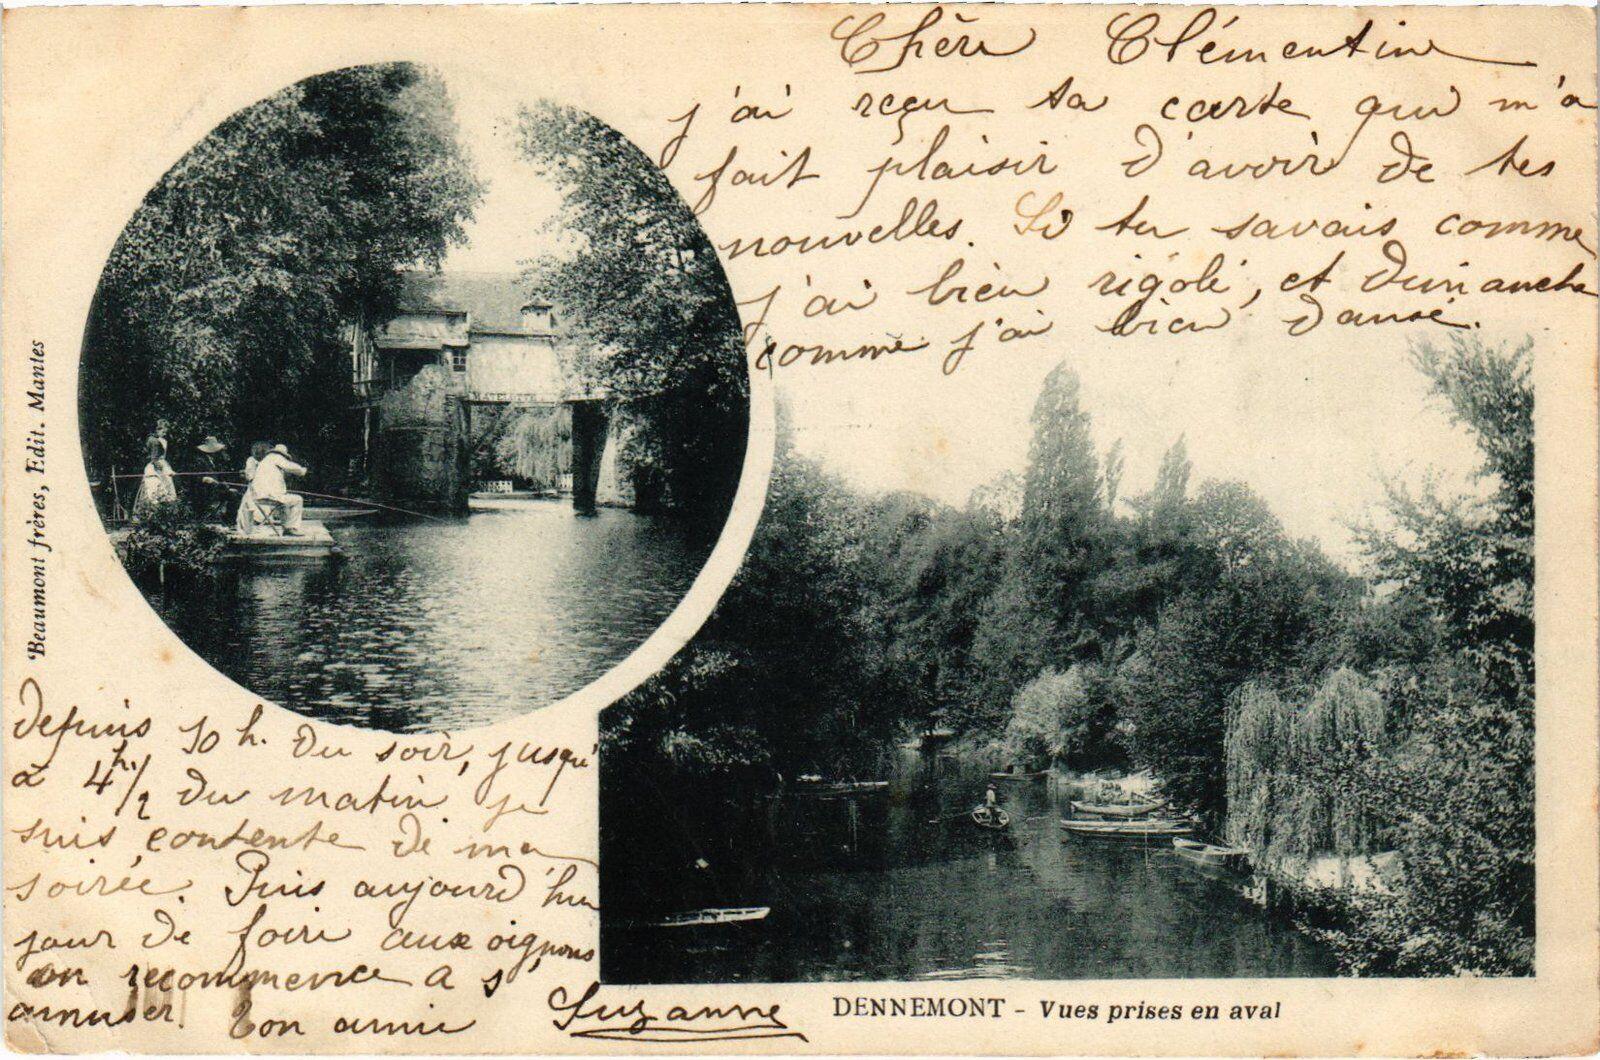 Chère Clémentine
j'ai reçu ta carte qui m'a
fait plaisir d'avoir de tes
nouvelles. Si tu savais comme
j'ai bien rigolé, et dimanche
comme j'ai bien dansé.
depuis 10 h. du soir, jusqu'
à 4 h. 1/2 du matin je
suis contente de ma
soirée. Puis aujourd'hui
jour de foire aux oignons
on recommence a s'
amuser. Ton amie Suzanne
Beaumont frères, Edit. Mantes
DENNEMONT - Vues prises en aval